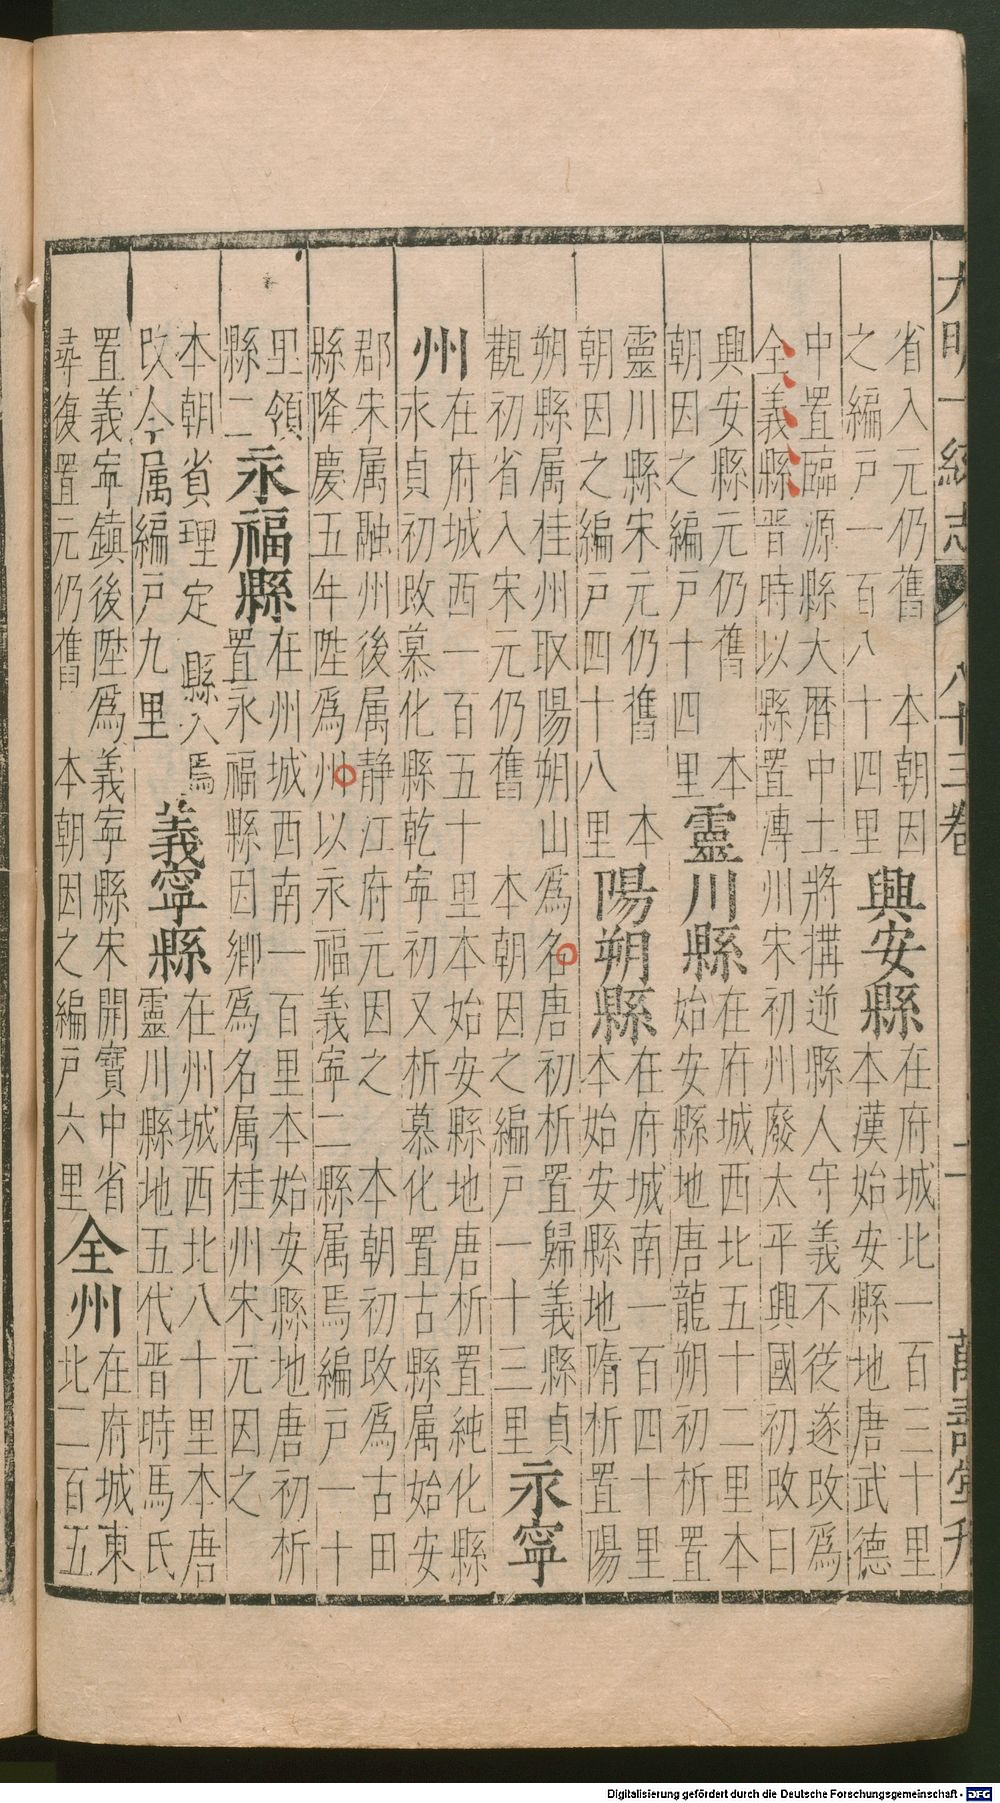 大明一統志 八十三卷 二 萬壽堂刊
省入元仍舊 本朝因
之編戸一百八十四里
興安縣
在府城北一百三十里
本漢始安縣地唐武德
中置臨源縣大曆中土將搆逆縣人守義不從遂改爲
全義縣晋時以縣置溥州宋初州廢太平興國初改曰
興安縣元仍舊 本
朝因之編戸十四里
靈川縣
在府城西北五十二里本
始安縣地唐龍朔初析置
靈川縣宋元仍舊 本
朝因之編戸四十八里
陽朔縣
在府城南一百四十里
本始安縣地隋析置陽
朔縣属桂州取陽朔山爲名唐初析置歸義縣貞
觀初省入宋元仍舊 本朝因之編戸一十三里
永寧
州
在府城西一百五十里本始安縣地唐析置純化縣
永貞初改慕化縣乾寧初又析慕化置古縣属始安
郡宋属融州後属静江府元因之 本朝初改爲古田
縣隆慶五年陞爲州以永福義寧二縣属焉編戸一十
里領
縣二
永福縣
在州城西南一百里本始安縣地唐初析
置永福縣因鄉爲名属桂州宋元因之
本朝省理定 縣入焉
改今属編戸九里
義寧縣
在州城西北八十里本唐
靈川縣地五代晋時馬氏
置義寧鎮後陞爲義寧縣宋開寶中省
尋復置元仍舊 本朝因之編戸六里
全州
在府城東
北二百五
Digitalisierung gefördert durch die Deutsche Forschungsgemeinschaft - DFG